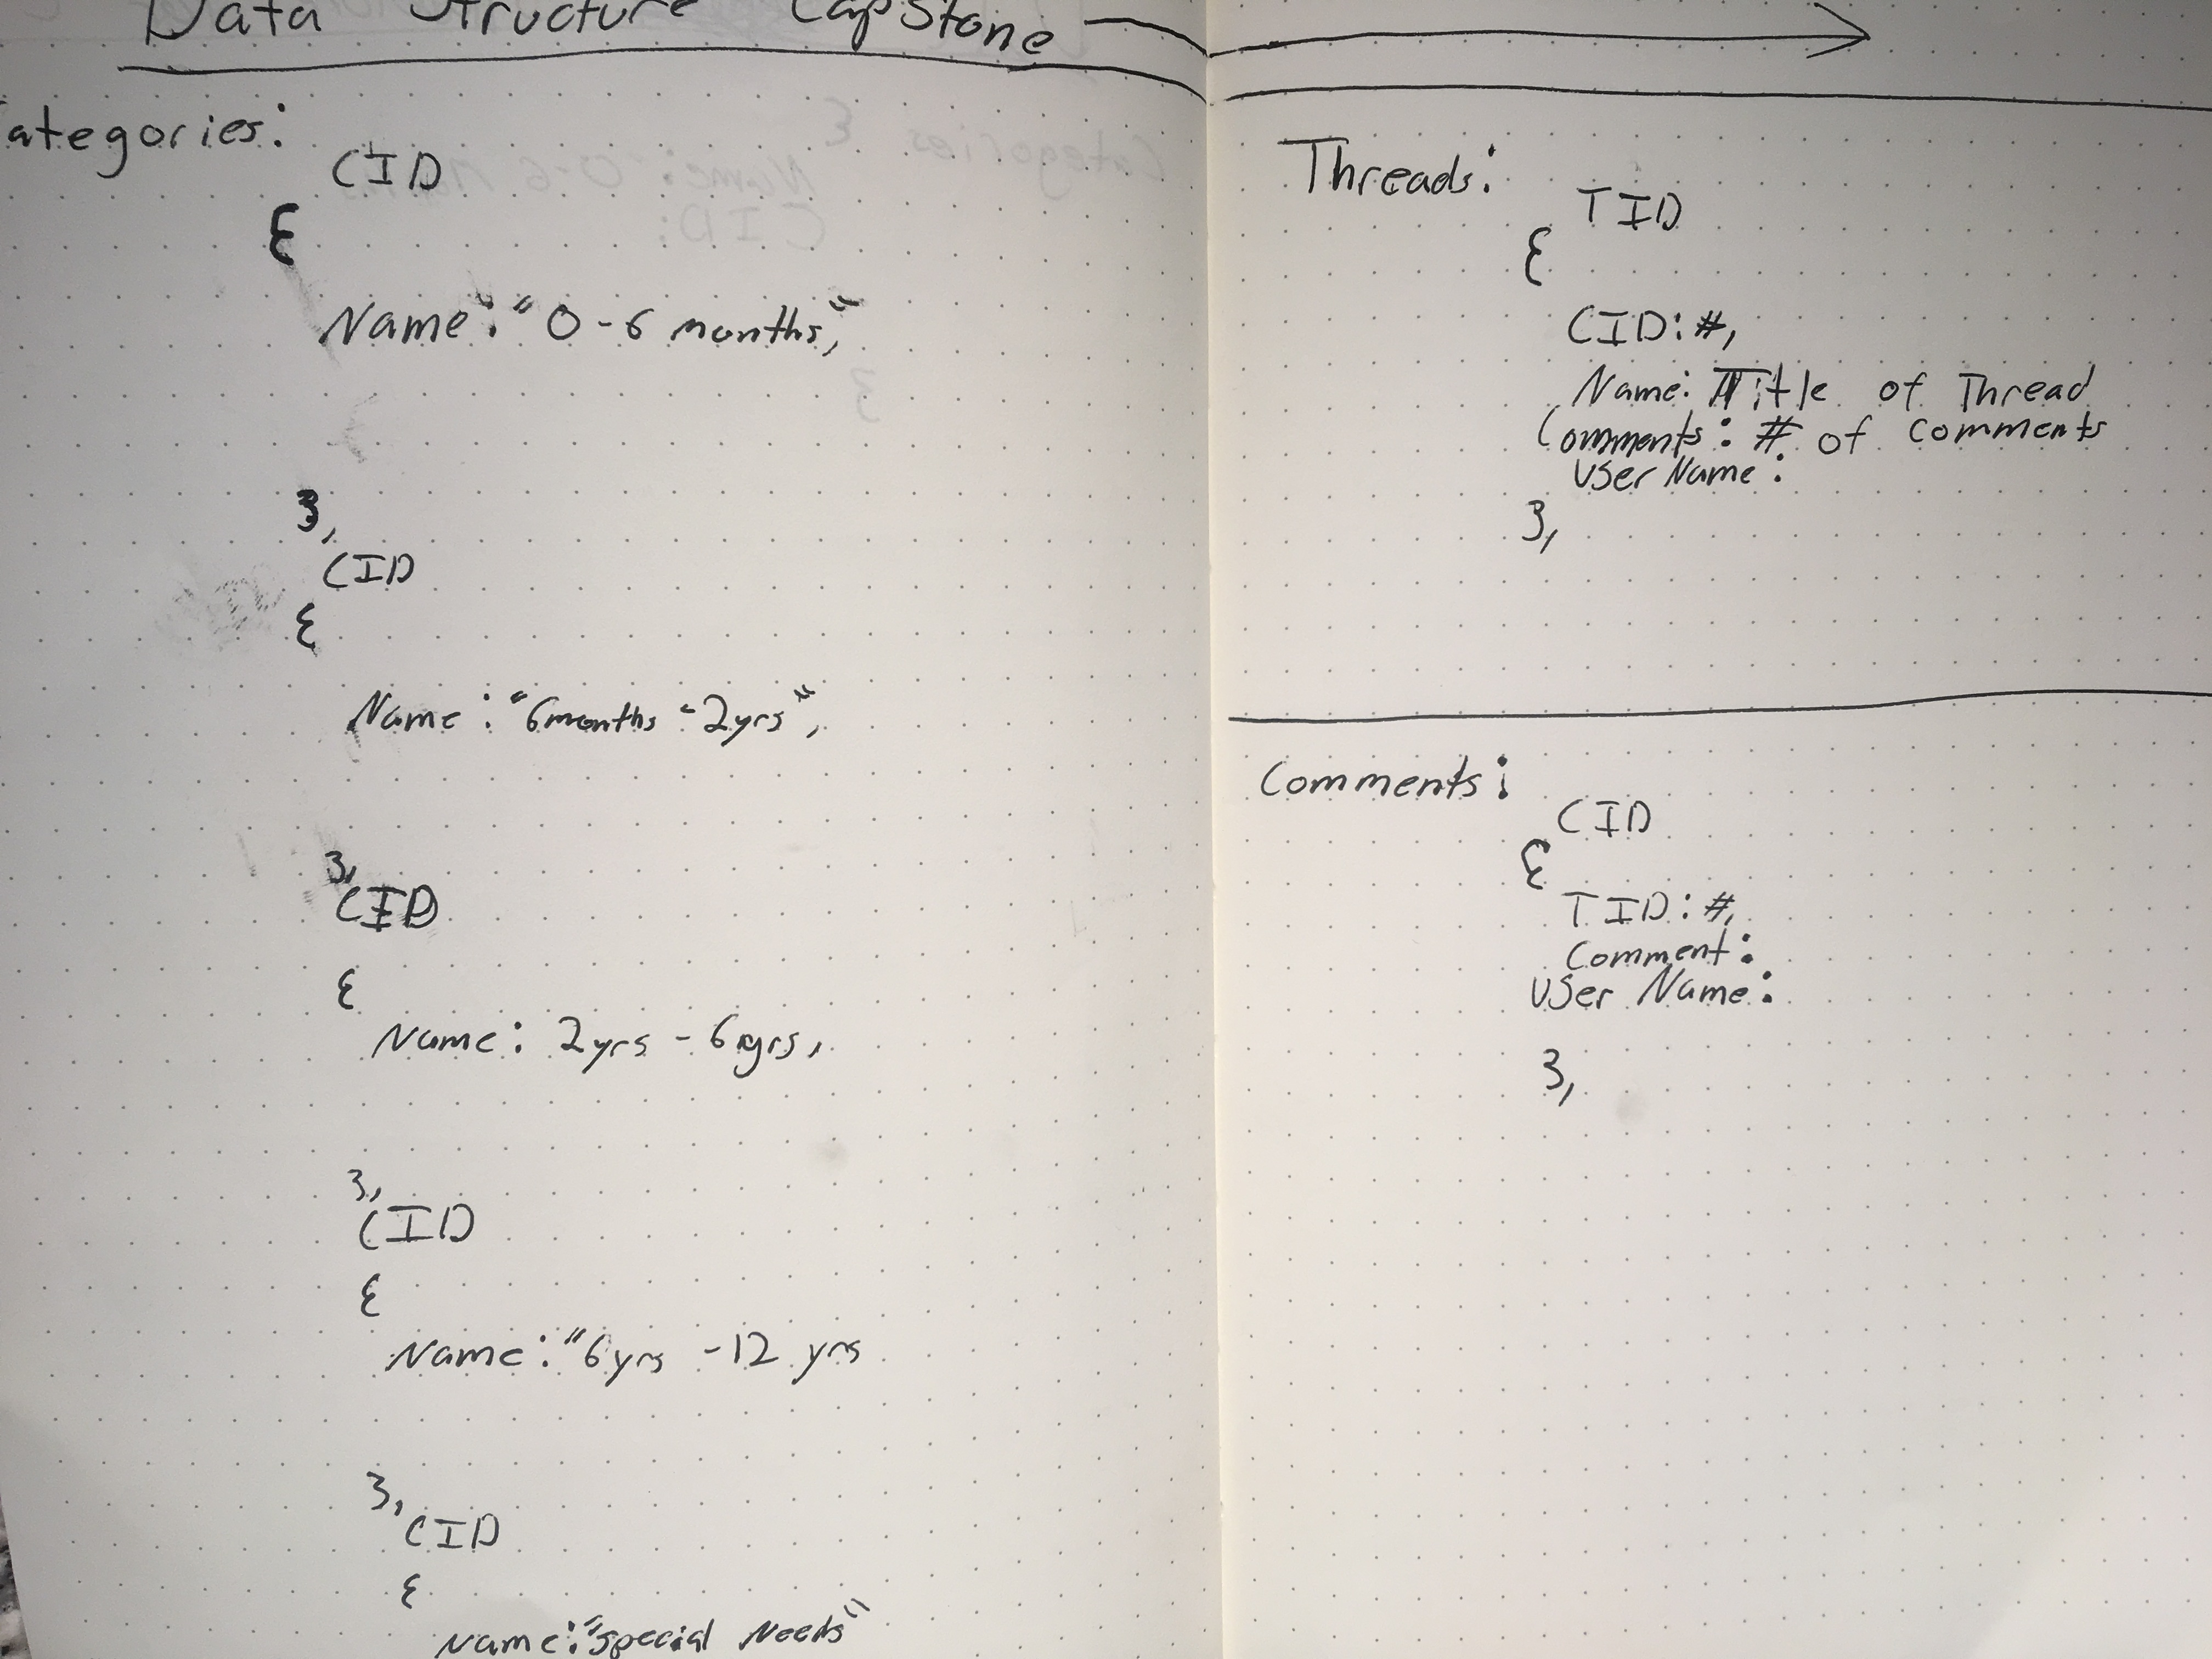 Data Structure CapStone
ategories:
CID
{
Name: "0-6 months,"
},
CID
{
Name: "6months-2yrs",
},
CID
{
Name: 2yrs - 6yrs,
},
CID
{
Name: "6yrs - 12 yrs
},
CID
{
Name: "special Needs"
Threads:
TID
{
CID: #,
Name: Title of Thread
Comments: # of comments
User Name:
},
Comments:
CID
{
TID: #,
Comment:
User Name:
},